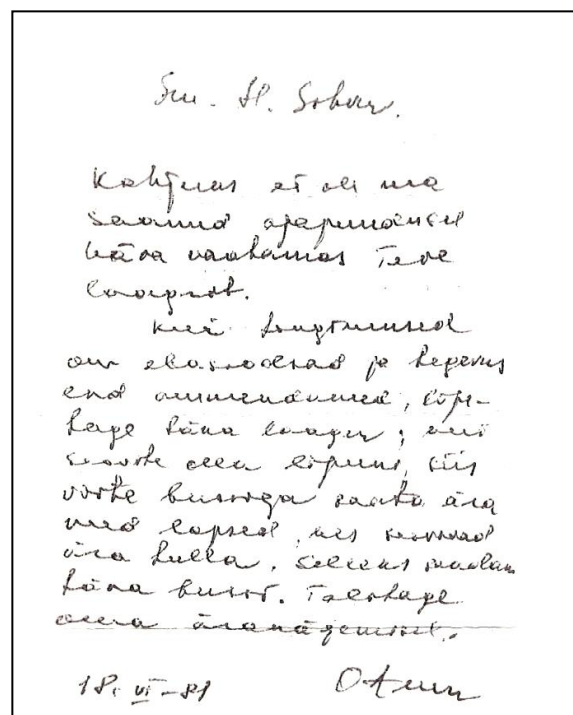 Sm. H.
Kahjuks ei ole ma
saanud ajapuudusel
käia vaatamas Teie
laagrit.
Kui tingimused
on ebasoodsad ja tegevus
end ammendanud, lõpe-
tage täna laager; kui
soovite olla lõpuni, siis
võite bussiga saata ära
need lapsed, kes
ära tulla. Selleks saadan
täna bussi. Talitage
oma äranägemisel.
18. VI -81